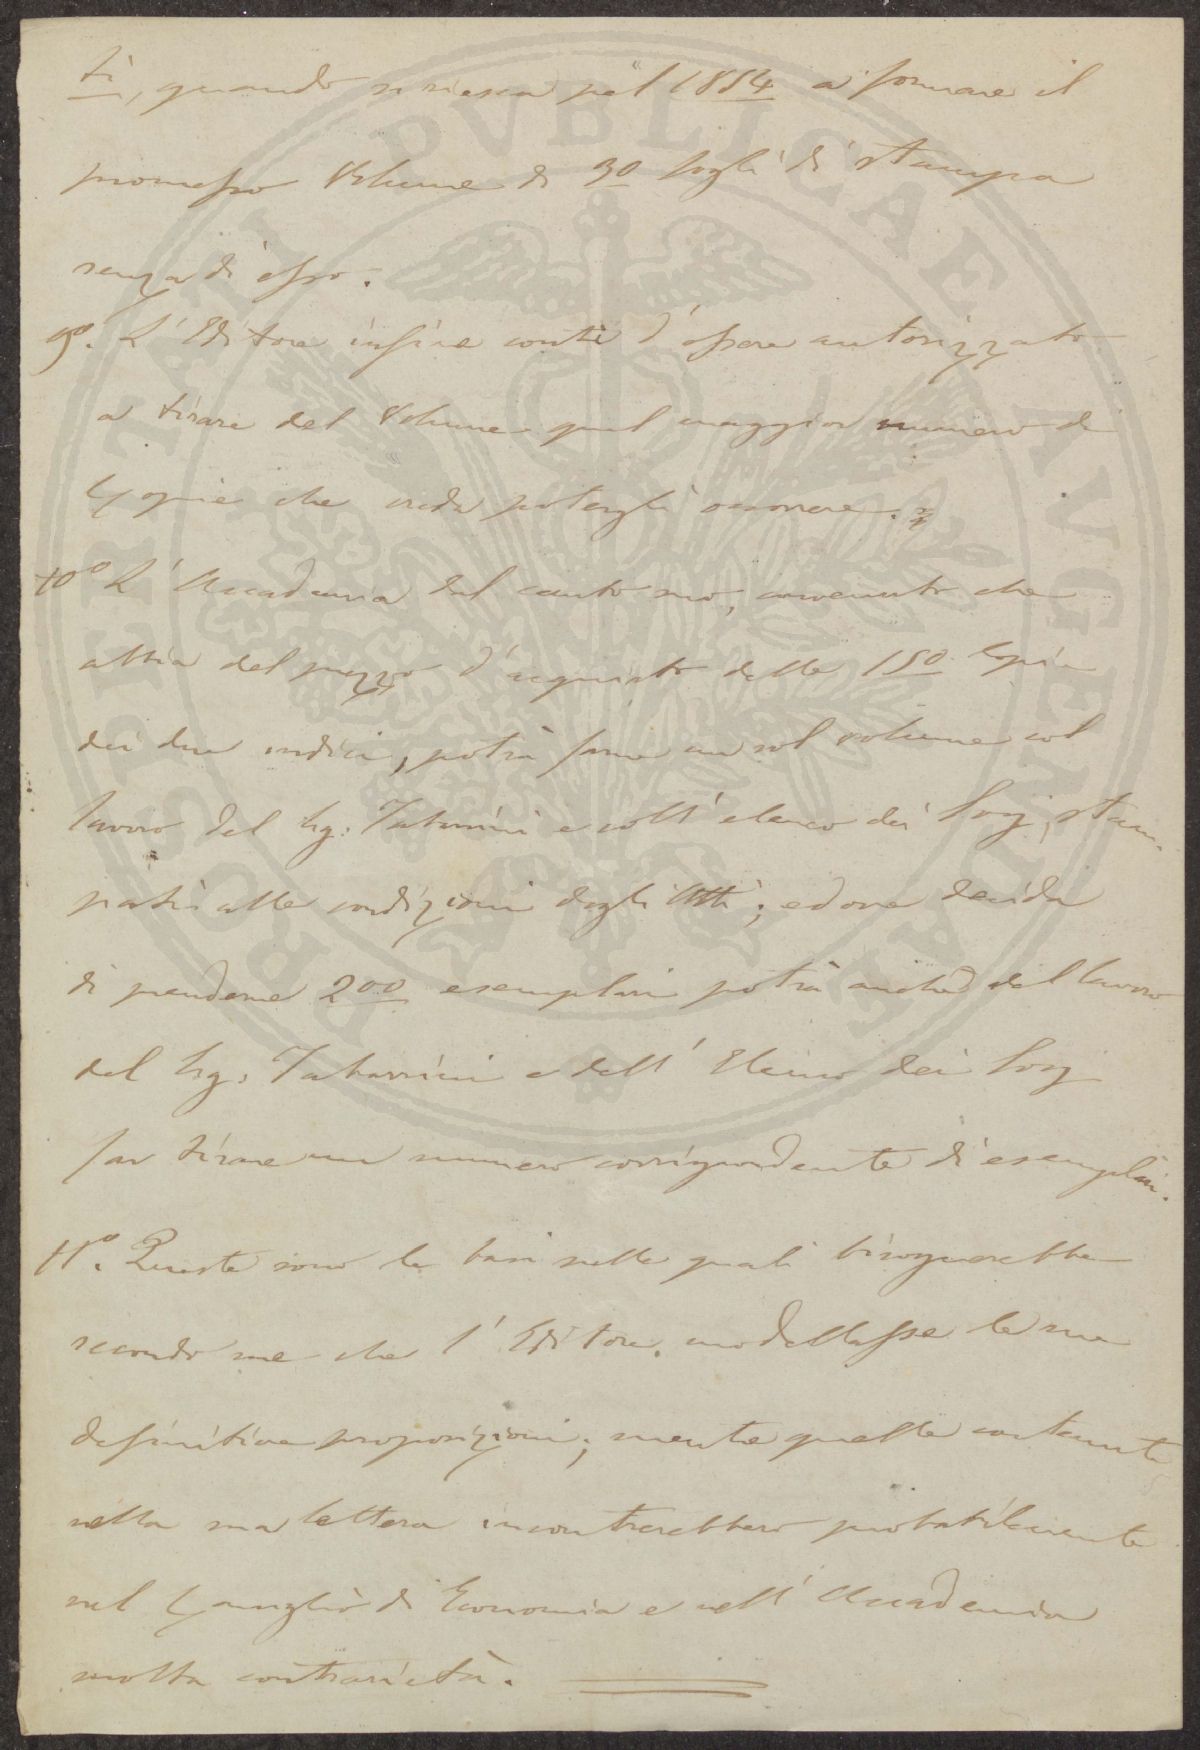 ti, quando si riesca pel 1854 a formare il
promesso Volume di 30 fogli di stampa
senza di esso.
9º. L'Editore infine conti d'essere autorizzato
a tirare del Volume quel maggior numero di
Copie che creda potergli occorrere.
10º L'Accademia dal canto suo, convenuto che
abbia del prezzo d'acquisto delle 150 Copie
dei due indici, potrà farne un sol volume col
lavoro del Sig: Tabarrini e coll'elenco dei Socj, stam-
pati alle condizioni degli Atti; ed ove decida
di prenderne 200 esemplari potrà anche del lavoro
del Sig: Tabarrini e dell'Elenco dei Socj
far tirare un numero corrispondente di esemplari.
11º. Queste sono le basi sulle quali bisognerebbe
secondo me che l'Editore modellasse le sue
definitive proposizioni; mentre quelle contenute
nella sua lettera incontrerebbero probabilmente
nel Consiglio di Economia e nell'Accademia
molta contrarietà.
PROSPERITATI PVBLICAE AVGENDAE